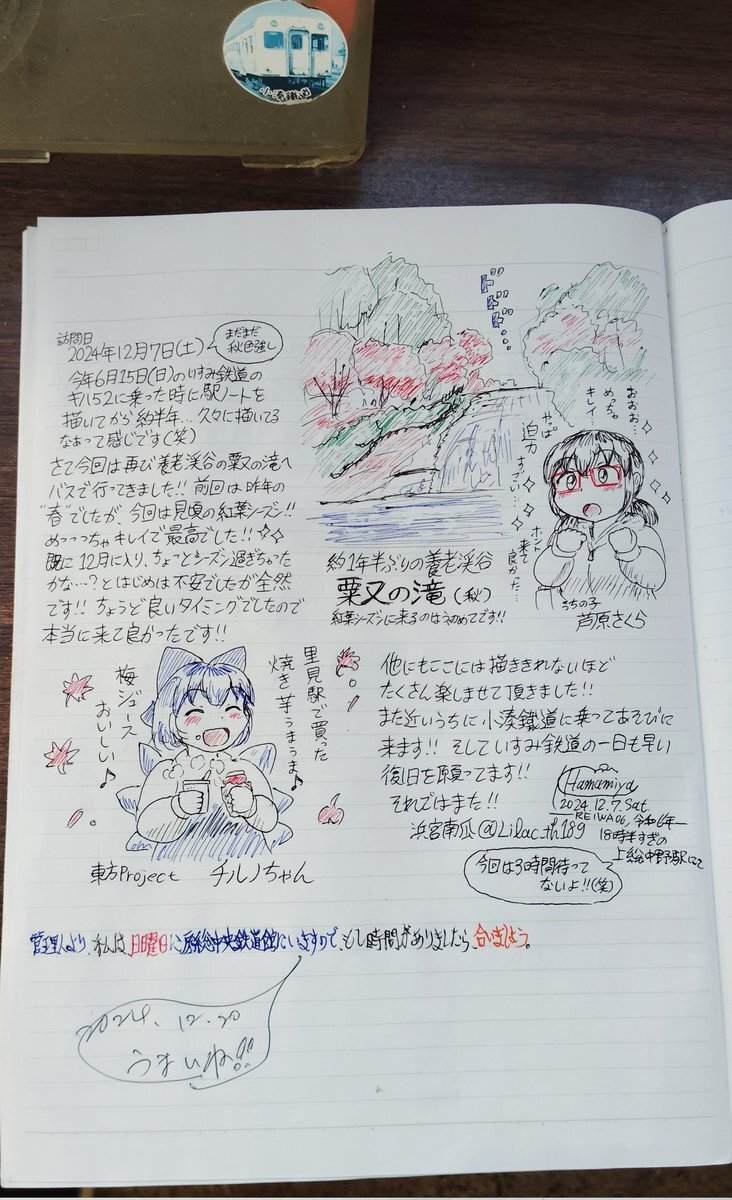 小湊鐵道
訪問日
2024年12月7日(土)
まだまだ
秋色強し
今年6月15日(日)のいすみ鉄道の
キハ52に乗った時に駅ノートを
描いてから約半年…久々に描いてる
なぁって感じです(笑)
さて今回は再び養老渓谷の粟又の滝へ
バスで行ってきました!!前回は昨年の
"春"でしたが、今回は見頃の紅葉シーズン!!
めっっっちゃキレイで最高でした!!
既に12月に入り、ちょっとシーズン過ぎちゃった
かな…?とはじめは不安でしたが全然
です!!ちょうど良いタイミングでしたので
本当に来て良かったです!!
ドドドド…
おおお…
めっちゃ
キレイ…
やっぱ
迫力
すっごい…
ホント
来て
良かった…
約1年半ぶりの養老渓谷
粟又の滝(秋)
紅葉シーズンに来るのは初めてです!!
うちの子
芦原さくら
里見駅で買った
焼き芋うまうま♪
梅ジュース
おいしい♪
東方Project チルノちゃん
他にもここには描ききれないほど
たくさん楽しませて頂きました!!
また近いうちに小湊鐵道に乗ってあそびに
来ます!!そしていすみ鉄道の一日も早い
復旧を願ってます!!
それではまた!!
浜宮南瓜@Lilac_th189
Hamamiya
2024.12.7.Sat
REIWA06,令和6年
18時半すぎの
上総中野駅にて
今回は3時間待って
ないよ!!(笑)
管理人より、私は、日曜日に房総中央鉄道館にいますので、もし時間がありましたら、合いましょう。
2024.12.20
うまいね!!